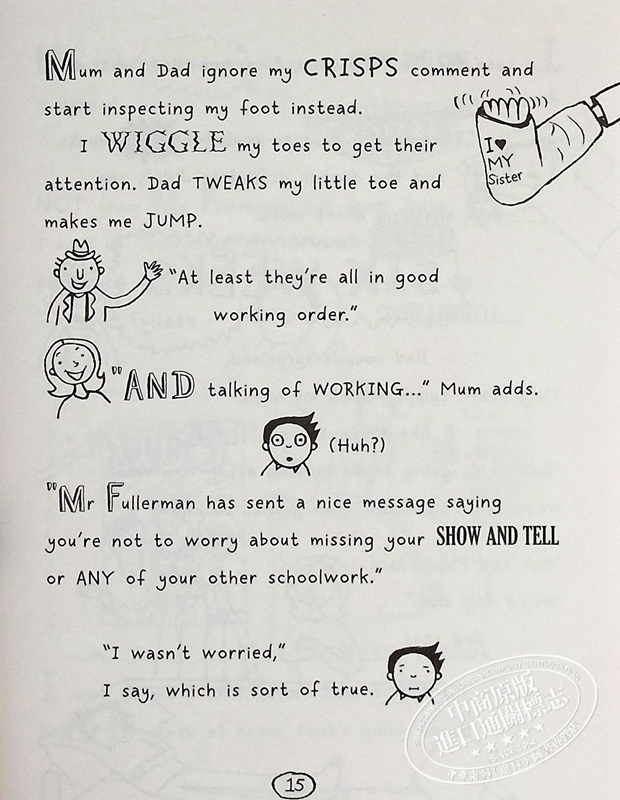 Mum and Dad ignore my CRISPS comment and
start inspecting my foot instead.
I WIGGLE my toes to get their
attention. Dad TWEAKS my little toe and
makes me JUMP.
I ♥
MY
Sister
"At least they're all in good
working order."
"AND talking of WORKING..." Mum adds.
(Huh?)
"Mr Fullerman has sent a nice message saying
you're not to worry about missing your SHOW AND TELL
or ANY of your other schoolwork."
"I wasn't worried,"
I say, which is sort of true.
中商原版
進口通關標志
15